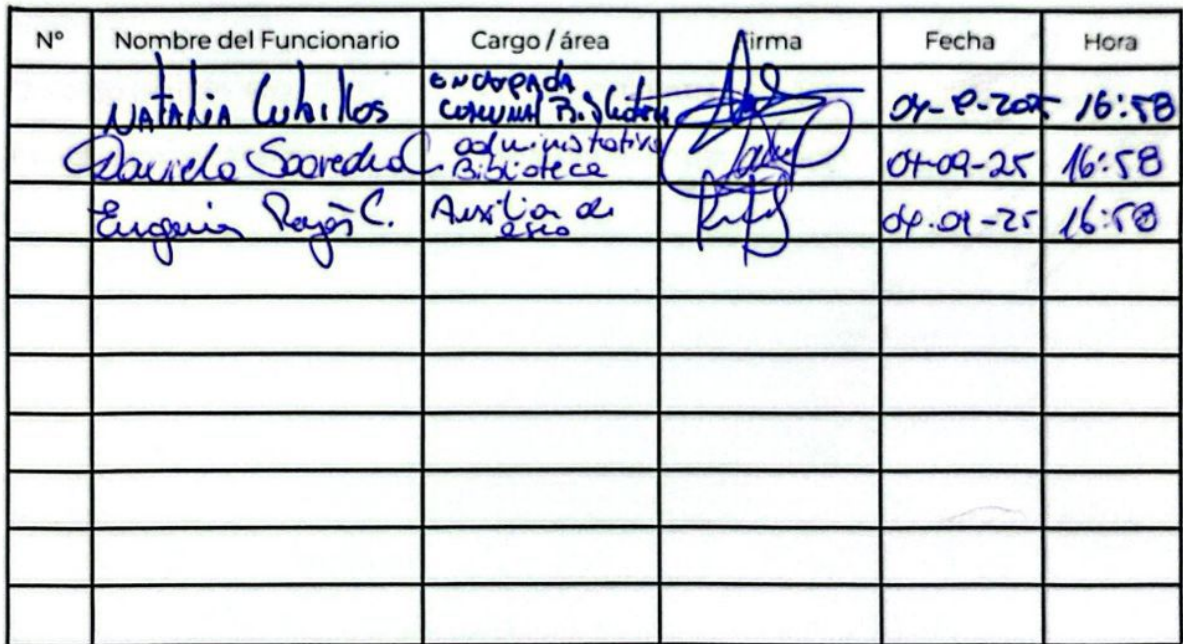 Nº Nombre del Funcionario Cargo / área Firma Fecha Hora
NATALIA Cubillos ENCARGADA COMUNAL Biblioteca 16:58
Daniela Saavedra C. administrativa Biblioteca 04-09-25 16:58
Eugenia Rojas C. Auxiliar de aseo 04-09-25 16:58